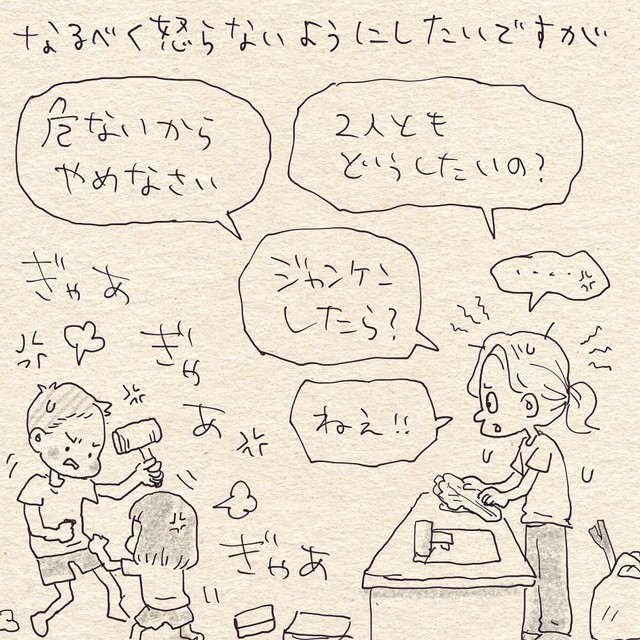 なるべく怒らないようにしたいですが
2人とも
どうしたいの?
危ないから
やめなさい
ジャンケン
したら?
・・・・
ねぇ!!
ぎゃあ
ぎゃ
あ
ぎゃあ